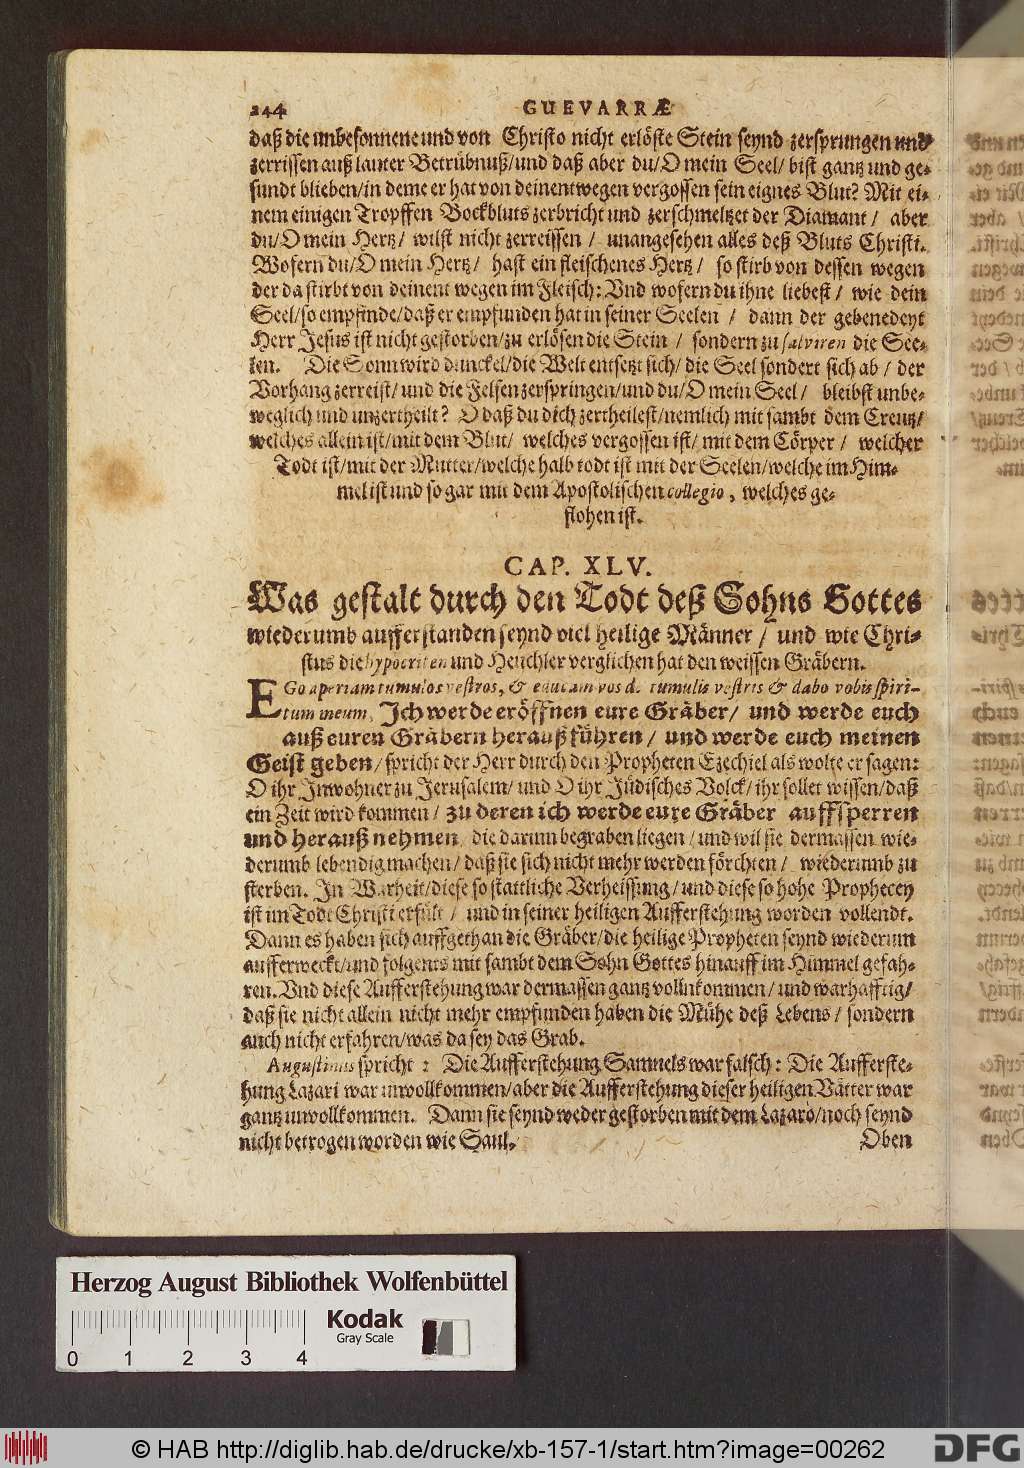 244 GUEVARRÆ
daß die unbesonnene und von Christo nicht erlöste Stein seynd zersprungen und
zerrissen auß lauter Betrübnuß/und daß aber du/O mein Seel/ bist gantz und ge-
sundt blieben/in deme er hat von deinentwegen vergossen sein eignes Blut? Mit ei-
nem einigen Tropffen Bockbluts zerbricht und zerschmeltzet der Diamant / aber
du/O mein Hertz/ wilst nicht zerreissen / unangesehen alles deß Bluts Christi.
Wofern du/O mein Hertz/ hast ein fleischenes Hertz/ so stirb von dessen wegen
der da stirbt von deinent wegen im Fleisch: Vnd wofern du ihne liebest/ wie dein
Seel/so empfinde/daß er empfunden hat in seiner Seelen / dann der gebenedeyt
Herr Jesus ist nicht gestorben/zu erlösen die Stein / sondern zu salviren die See-
len. Die Sonn wird dunckel/die Welt entsetzt sich/ die Seel sondert sich ab / der
Vorhang zerreist/ und die Felsen zerspringen/und du/O mein Seel / bleibst unbe-
weglich und unzertheilt? O daß du dich zertheilest/nemlich mit sambt dem Creutz/
welches allein ist/mit dem Blut/ welches vergossen ist/ mit dem Cörper / welcher
Todt ist/mit der Mutter/welche halb todt ist mit der Seelen/welche im Him-
mel ist und so gar mit dem Apostolischen collegio, welches ge-
flohen ist.
CAP. XLV.
Was gestalt durch den Todt deß Sohns Gottes
wiederumb aufferstanden seynd viel heilige Männer / und wie Chri-
stus die hypocriten und Heuchler verglichen hat den weissen Gräbern.
EGo aperiam tumulos vestros, & educam vos de tumulis vestris & dabo vobis spiri-
tum meum, Ich werde eröffnen eure Gräber/ und werde euch
auß euren Gräbern herauß führen / und werde euch meinen
Geist geben/spricht der Herr durch den Propheten Ezechiel als wolte er sagen:
O ihr Inwohner zu Jerusalem/ und O ihr Jüdisches Volck/ihr sollet wissen/daß
ein Zeit wird kommen / zu deren ich werde eure Gräber auffsperren
und herauß nehmen die darinn begraben liegen / und wil sie dermassen wie-
derumb lebendig machen/ daß sie sich nicht mehr werden förchten / wiederumb zu
sterben. In Warheit/diese so stattliche Verheissung/und diese so hohe Prophecey
ist im Todt Christi erfült / und in seiner heiligen Aufferstehung worden vollendt.
Dann es haben sich auffgethan die Gräber/die heilige Propheten seynd wiederum
aufferweckt/und folgents mit sambt dem Sohn Gottes hinauff im Himmel gefah-
ren. Vnd diese Aufferstehung war dermassen gantz vollnkommen/ und warhafftig/
daß sie nicht allein nicht mehr empfunden haben die Mühe deß Lebens/ sondern
auch nicht erfahren/was da sey das Grab.
Augustinus spricht : Die Aufferstehung Samuels war falsch: Die Aufferste-
hung Lazari war unvollkommen/aber die Aufferstehung dieser heiligen Vätter war
gantz unvollkommen. Dann sie seynd weder gestorben mit dem Lazaro/noch seynd
nicht betrogen worden wie Saul.
Oben
Herzog August Bibliothek Wolfenbüttel
Kodak
Gray Scale
0 1 2 3 4
© HAB http://diglib.hab.de/drucke/xb-157-1/start.htm?image=00262
DFG